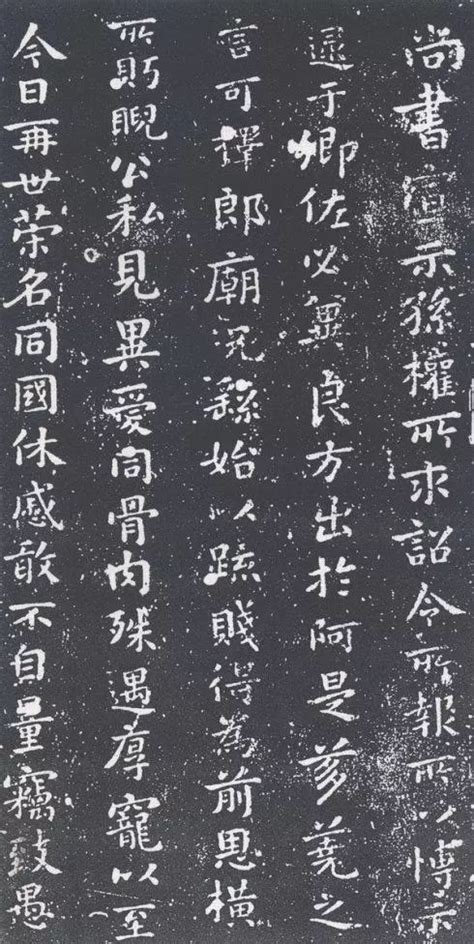 尚書宣示孫權所求詔令所報所以博示
逮于卿佐必冀良方出於阿是芻蕘之
言可擇郎廟況繇始以疏賤得為前恩橫
所眄睨公私見異愛同骨肉殊遇厚寵以至
今日再世荣名同國休慼敢不自量竊致愚